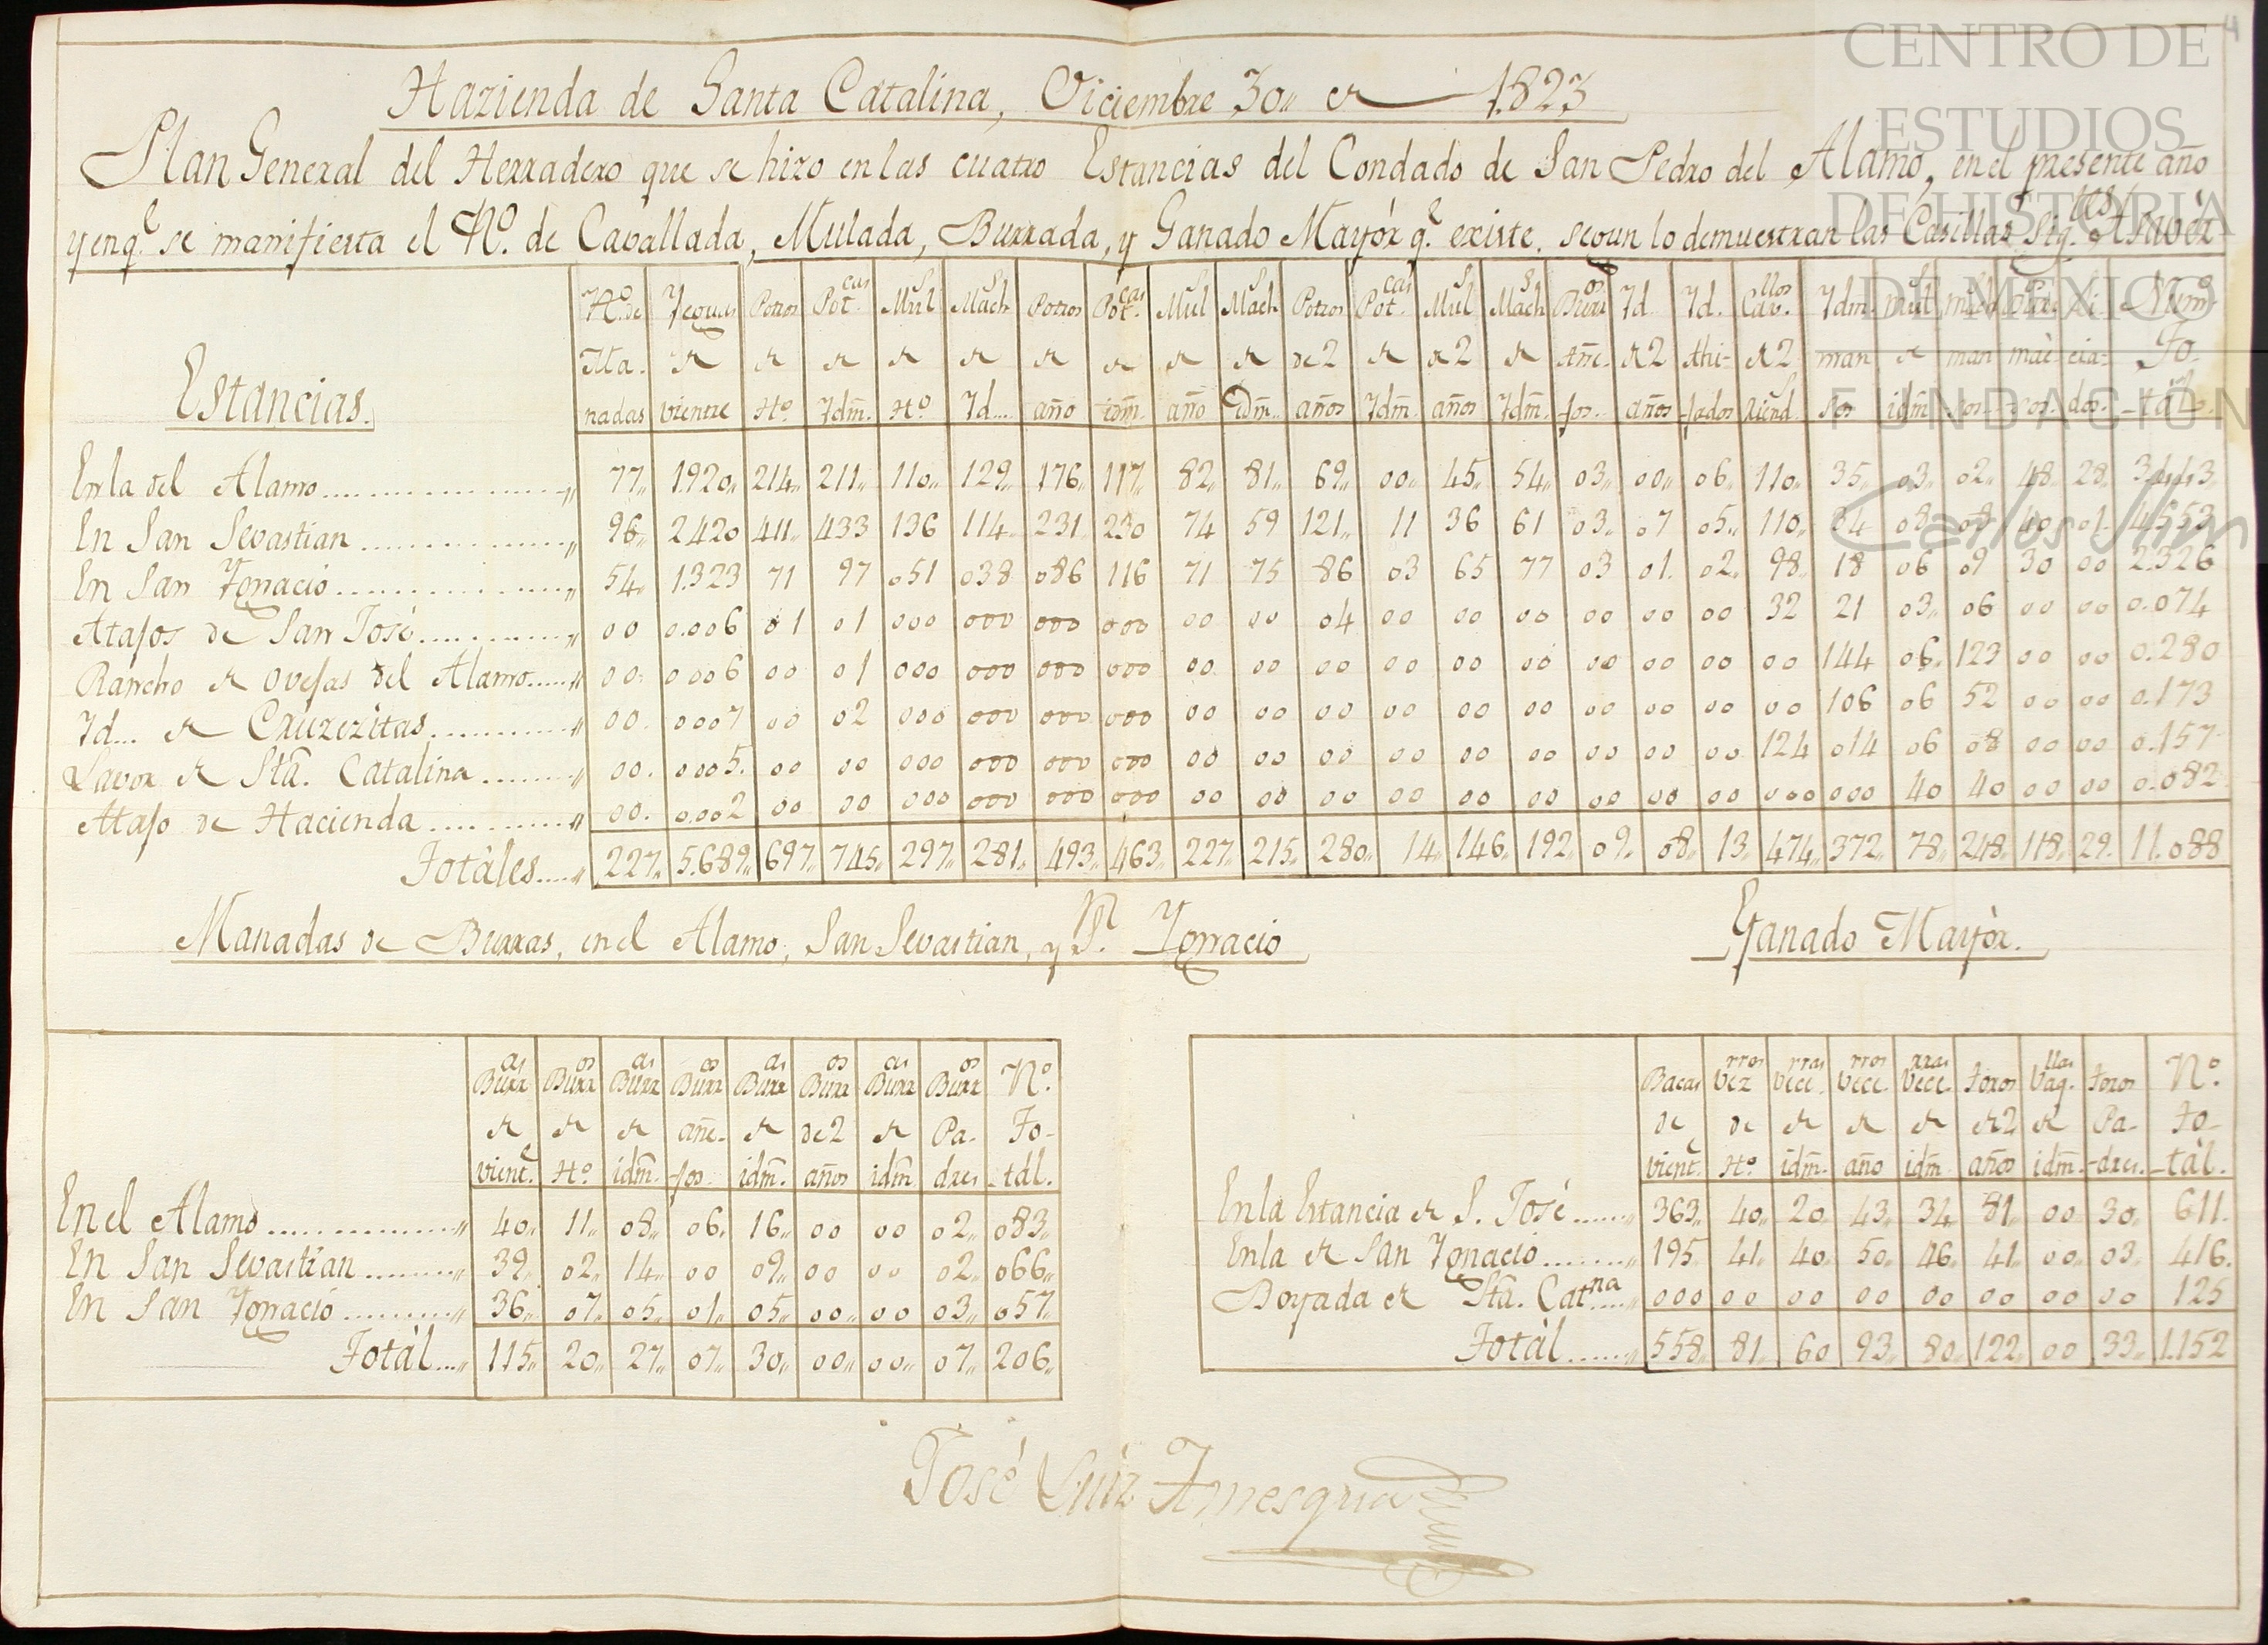 Hazienda de Santa Catalina, Diciembre 30,, de 1.823
Plan General del Herradero que se hizo en las cuatro Estancias del Condado de San Pedro del Alamo, en el presente año
y enq.e se manifiesta el N.o de Cavallada, Mulada, Burrada, y Ganado Mayór q.e existe. segun lo demuestran las Casillas Sig.tes Asavér
N.o de Yeguas Potros Pot.cas Mul.s Mach.s Potros Pot.cas Mul.s Mach.s Potros Pot.cas Mul.s Mach.s Burr.os Yd. Yd. Cav.llos Ydm. Num.o
Ma- de de de de de de de de de de 2 de de 2 de Añe- de 2 Ahi- de 2 man de man To-
nadas vientre H.o Ydm. H.o Yd... año idm. año Ydm. años Ydm. años Ydm. jos.. años jados Riend. sos idm. sos.. dos.. tál.
Estancias.
En la del Alamo.................. 77,, 1.920,, 214,, 211,, 110,, 129,, 176,, 117,, 82,, 81,, 69,, 00,, 45,, 54,, 03,, 00,, 06,, 110,, 35,, 03,, 02,, 48,, 28,, 3.443,,
En San Sevastian.................. 96,, 2.420 411,, 433 136 114,, 231,, 230 74 59 121,, 11 36 61 03,, 07 05,, 110,, 34 08,, 08 40 01 4.553
En San Ygnacio.................. 54,, 1.323 71 97 051 038 086 116 71 75 86 03 65 77 03 01. 02. 98.. 18 06 09 30 00 2.326
Atajos de San José............ 00 0.006 01 01 000 000 000 000 00 00 04 00 00 00 00 00 00 32 21 03,, 06 00 00 0.074
Rancho de ovejas del Alamo...... 00. 0006 00 01 000 000 000 000 00 00 00 00 00 00 00 00 00 00 144 06. 123 00 00 0.280
Yd... de Cruzezitas............ 00. 0007 00 02 000 000 000 000 00 00 00 00 00 00 00 00 00 00 106 06 52 00 00 0.173
Lavor de Sta. Catalina........ 00. 0005. 00 00 000 000 000 000 00 00 00 00 00 00 00 00 00 124 014 06 08 00 00 0.157
Atajo de Hacienda............ 00. 0.002 00 00 000 000 000 000 00 00 00 00 00 00 00 00 00 000 000 40 40 00 00 0.082
Totáles..... 227,, 5.689,, 697,, 745,, 297,, 281,, 493,, 463,, 227,, 215,, 280,, 14,, 146,, 192,, 09,, 08,, 13,, 474,, 372,, 78,, 248,, 118,, 29. 11.088
Manadas de Burras, en el Alamo, San Sevastian, y S.n Ygnacio
Burr.as Burr.os Burr.as Burr.os Burr.as Burr.os Burr.as Burr.os N.o
de de de añe- de de 2 de Pa- To-
vient.e H.o idm. jos. idm. años idm dres tál.
En el Alamo............... 40,, 11,, 08,, 06,, 16,, 00 00 02,, 083,,
En San Sevastian.......... 39,, 02,, 14,, 00 09,, 00 00 02,, 066,,
En San Ygnacio............ 36,, 07,, 05,, 01,, 05,, 00,, 00 03,, 057,,
Totál.... 115,, 20,, 27,, 07,, 30,, 00,, 00,, 07,, 206,,
Ganado Mayór.
Bacas Vez.rros Vece.rras Vece.rros Vece.rras Toros Vaq.llas Toros N.o
de de de de de de 2 de Pa- To-
vient.e H.o idm. año idm. años idm. dres. tál.
En la Estancia de S. José....... 363,, 40,, 20,, 43,, 34,, 81,, 00 30,, 611.
En la de San Ygnacio......... 195 41,, 40,, 50,, 46,, 41,, 00,, 03,, 416.
Boyada de Sta. Cat.na..... 000 00 00 00 00 00 00 00 125
Totál....... 558,, 81,, 60 93,, 80,, 122,, 00 33,, 1.152
José Luiz Amesquia
CENTRO DE
ESTUDIOS
DE HISTORIA
DE MÉXICO
FUNDACIÓN
Carlos Slim
4